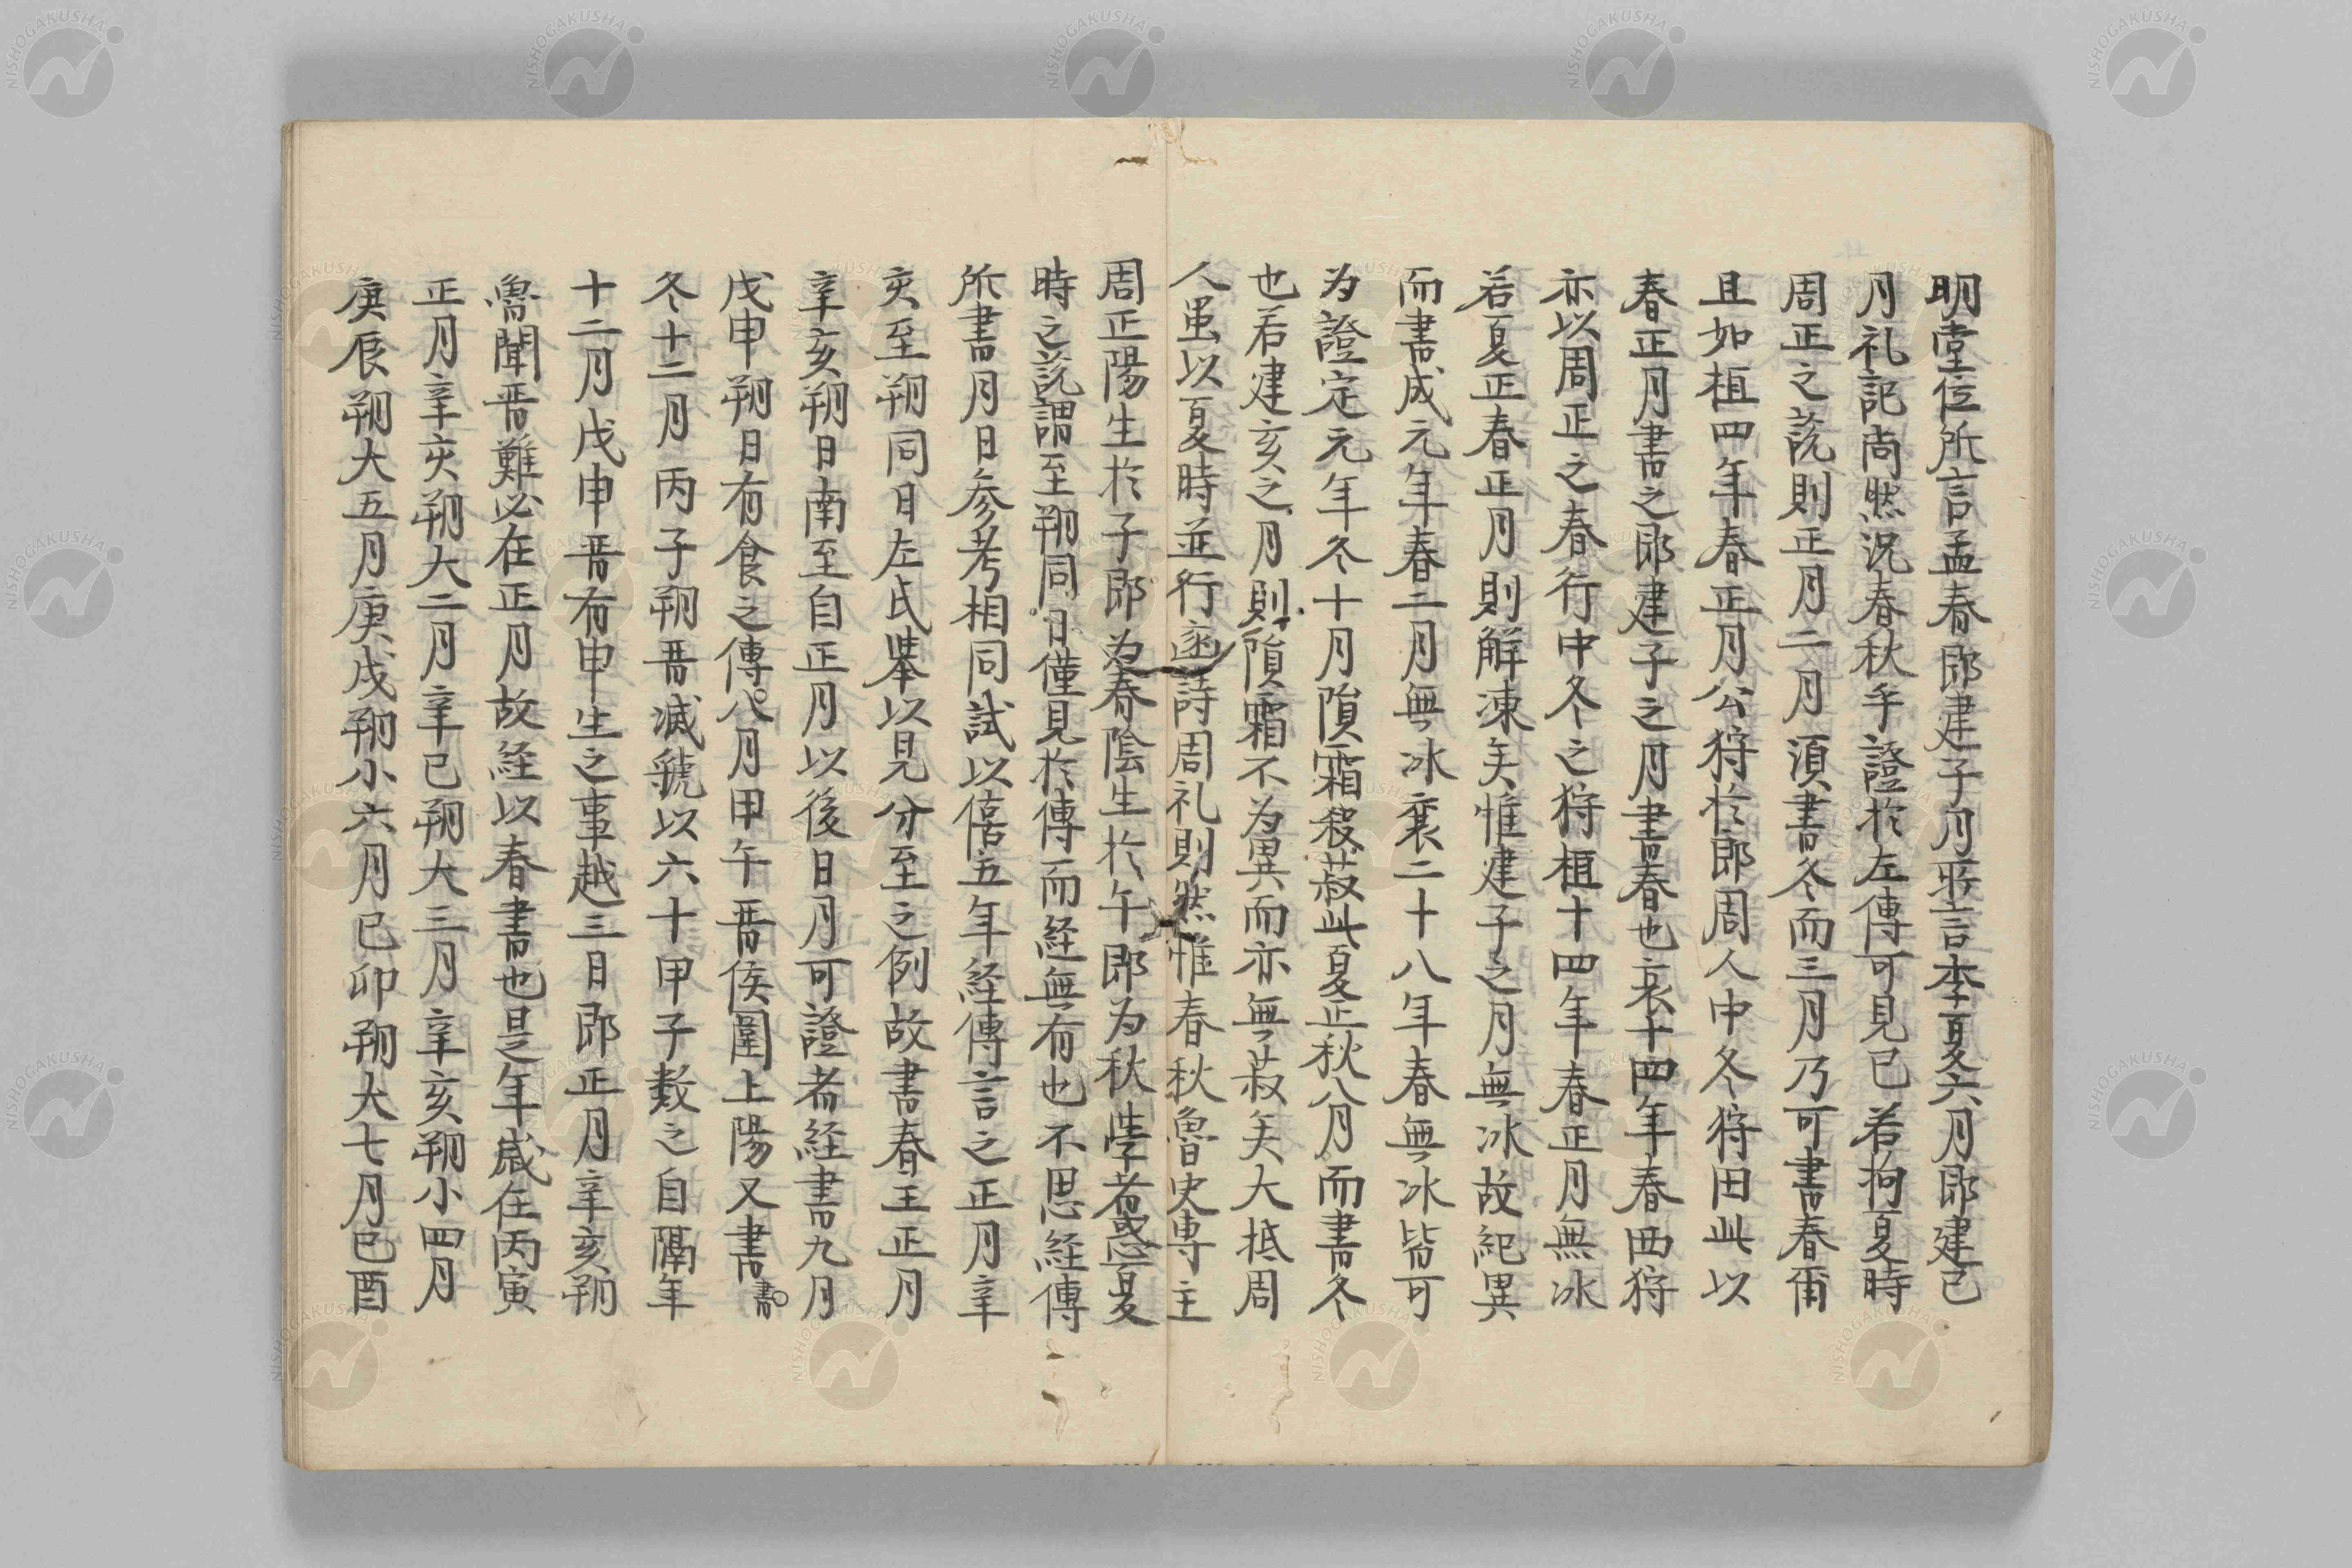 明堂位所言孟春即建子月所言季夏六月即建巳
月礼記尚然況春秋乎證於左傳可見已若拘夏時
周正之説則正月二月須書冬而三月乃可書春爾
且如桓四年春正月公狩於郎周人中冬狩田此以
春正月書之即建子之月書春也哀十四年春西狩
亦以周正之春行中冬之狩桓十四年春正月無冰
若夏正春正月則解凍矣惟建子之月無冰故紀異
而書成元年春二月無冰襄二十八年春無冰皆可
为證定元年冬十月隕霜殺菽此夏正秋八月而書冬
也若建亥之月則隕霜不为異而亦無菽矣大抵周
人虽以夏時並行邃詩周礼則然惟春秋魯史專主
周正陽生於子即为春陰生於午即为秋斈者惑夏
時之説謂至朔同日僅見於傳而経無有也不思経傳
所書月日参考相同試以僖五年経傳言之正月辛
亥至朔同日左氏举以見分至之例故書春王正月
辛亥朔日南至自正月以後日月可證者経書九月
戊申朔日有食之傳八月甲午晋侯圍上陽又書書
冬十二月丙子朔晋滅虢以六十甲子数之自隔年
十二月戊申晋有申生之事越三日即正月辛亥朔
魯聞晋難必在正月故経以春書也是年歲在丙寅
正月辛亥朔大二月辛巳朔大三月辛亥朔小四月
庚辰朔大五月庚戌朔小六月已卯朔大七月已酉